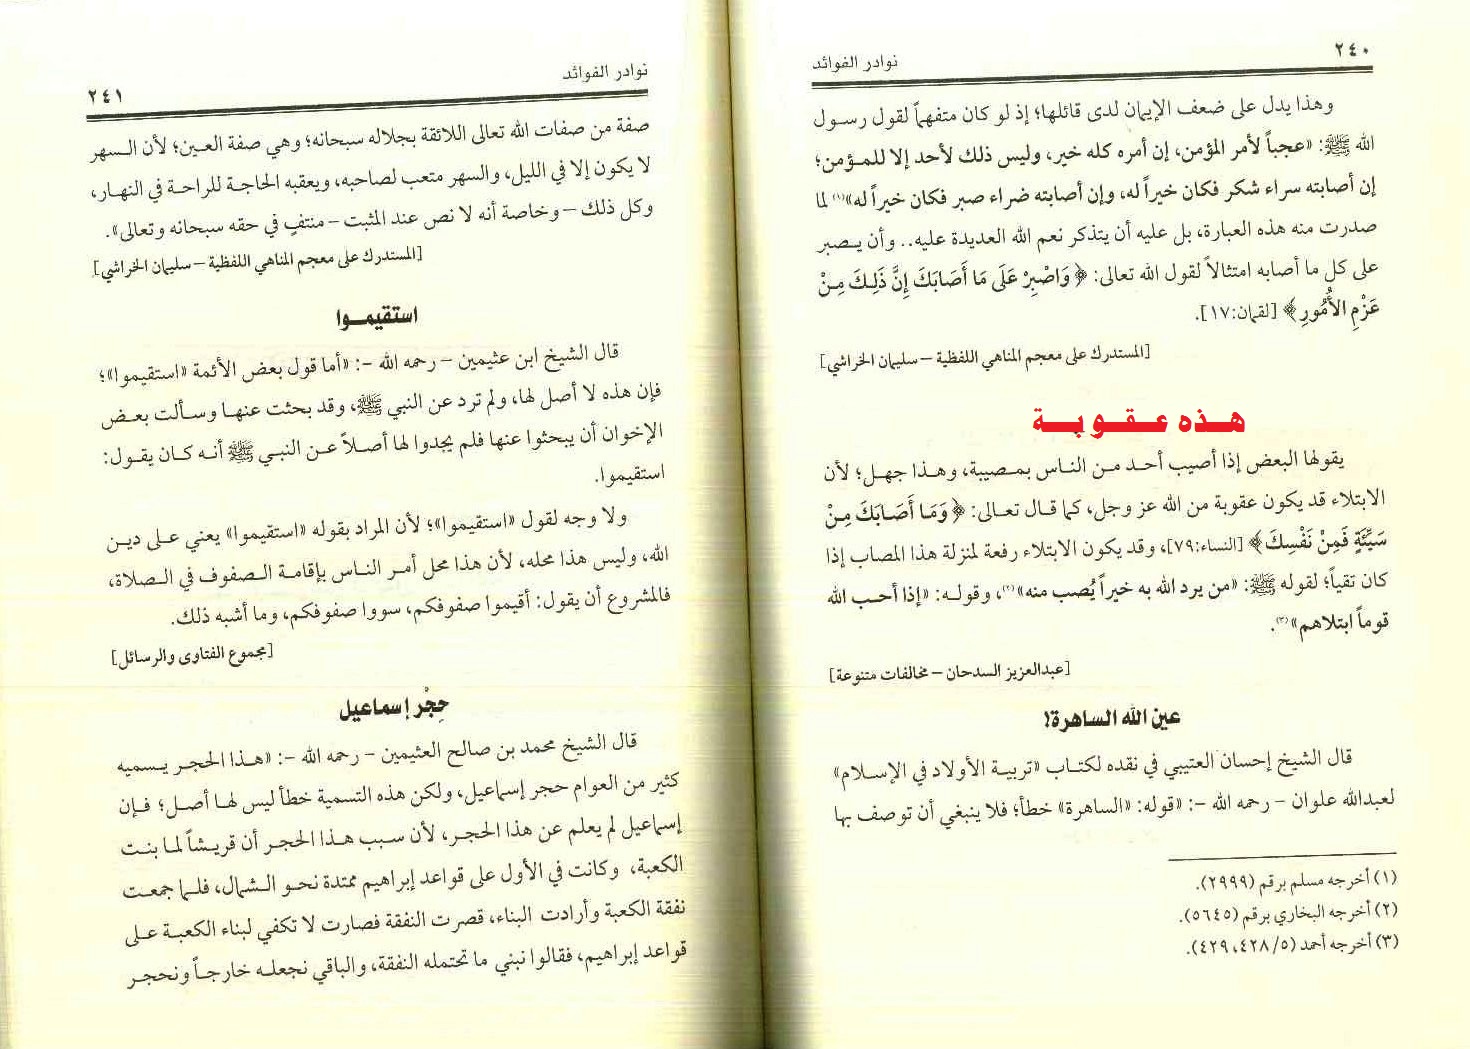 ٢٤٠
نوادر الفوائد
وهذا يدل على ضعف الإيمان لدى قائلها؛ إذ لو كان متفهماً لقول رسول
الله ﷺ: «عجباً لأمر المؤمن، إن أمره كله خير، وليس ذلك لأحد إلا للمـؤمن؛
إن أصابته سراء شكر فكان خيراً له، وإن أصابته ضراء صبر فكان خيراً له»(١) لما
صدرت منه هذه العبارة، بل عليه أن يتذكر نعم الله العديدة عليه.. وأن يـصبر
على كل ما أصابه امتثالاً لقول الله تعالى: ﴿وَاصْبِرْ عَلَى مَا أَصَابَكَ إِنَّ ذَلِكَ مِـنْ
عَزْمِ الأُمُورِ﴾ [لقمان:١٧].
[المستدرك على معجم المناهي اللفظية – سليمان الخراشي]
هـذه عـقـوبـة
يقولها البعض إذا أصيب أحـد مـن النـاس بمـصيبة، وهـذا جهـل؛ لأن
الابتلاء قد يكون عقوبة من الله عز وجل، كـما قـال تعـالى: ﴿وَمَـا أَصَابَكَ مِـنْ
سَيِّئَةٍ فَمِنْ نَفْسِكَ﴾ [النساء:٧٩]، وقد يكون الابتلاء رفعة لمنزلة هذا المصاب إذا
كان تقياً؛ لقوله ﷺ: «من يرد الله به خيراً يُصب منه»(٢)، وقولـه: «إذا أحـب الله
قوماً ابتلاهم»(٣).
[عبدالعزيز السدحان – مخالفات متنوعة]
عين الله الساهرة!
قال الشيخ إحسان العتيبي في نقده لكتـاب «تربيـة الأولاد في الإسـلام»
لعبدالله علوان – رحمه الله –: «قوله: «الساهرة» خطأ؛ فلا ينبغي أن توصف بها
(١) أخرجه مسلم برقم (٢٩٩٩).
(٢) أخرجه البخاري برقم (٥٦٤٥).
(٣) أخرجه أحمد (٥/ ٤٢٨، ٤٢٩).
نوادر الفوائد
٢٤١
صفة من صفات الله تعالى اللائقة بجلاله سبحانه؛ وهي صفة العـين؛ لأن الـسهر
لا يكون إلا في الليل، والسهر متعب لصاحبه، ويعقبه الحاجة للراحة في النهار،
وكل ذلك – وخاصة أنه لا نص عند المثبت – منتفٍ في حقه سبحانه وتعالى».
[المستدرك على معجم المناهي اللفظية – سليمان الخراشي]
استقيمـوا
قال الشيخ ابن عثيمين – رحمه الله –: «أما قول بعض الأئمة «استقيموا»؛
فإن هذه لا أصل لها، ولم ترد عن النبي ﷺ، وقد بحثت عنهـا وسـألت بعـض
الإخوان أن يبحثوا عنها فلم يجدوا لها أصلاً عـن النبـي ﷺ أنه كـان يقـول:
استقيموا.
ولا وجه لقول «استقيموا»؛ لأن المراد بقوله «استقيموا» يعني عـلى ديـن
الله، وليس هذا محله، لأن هذا محل أمـر النـاس بإقامـة الـصفوف في الـصلاة،
فالمشروع أن يقول: أقيموا صفوفكم، سووا صفوفكم، وما أشبه ذلك.
[مجموع الفتاوى والرسائل]
حِجْر إسماعيل
قال الشيخ محمد بن صالح العثيمين – رحمه الله –: «هـذا الحجـر يـسميه
كثير من العوام حجر إسماعيل، ولكن هذه التسمية خطأ ليس لهـا أصل؛ فـإن
إسماعيل لم يعلم عن هذا الحجـر، لأن سـبب هـذا الحجـر أن قريـشاً لمـا بنـت
الكعبة، وكانت في الأول على قواعد إبراهيم ممتدة نحـو الـشمال، فلـما جمعـت
نفقة الكعبة وأرادت البناء، قصرت النفقة فصارت لا تكفي لبناء الكعبـة عـلى
قواعد إبراهيم، فقالوا نبني ما تحتمله النفقة، والباقي نجعلـه خارجـاً ونحجـر